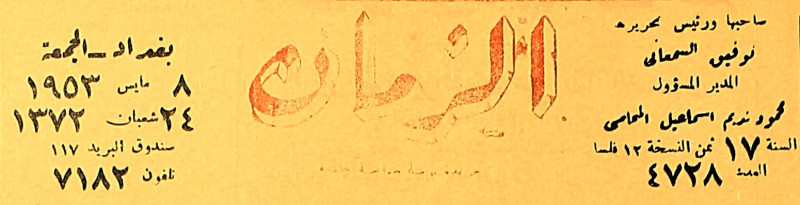 صاحبها ورئيس تحريره
توفيق السمعاني
المدير المسؤول
محمود نديم اسماعيل المحامي
السنة ١٧ ثمن النسخة ١٢ فلسا
العدد ٤٧٢٨
الزمان
جريدة يومية سياسية
بغداد - الجمعة
٨ مايس ١٩٥٣
٢٤ شعبان ١٣٧٢
صندوق البريد ١١٧
تلفون ٧١٨٢